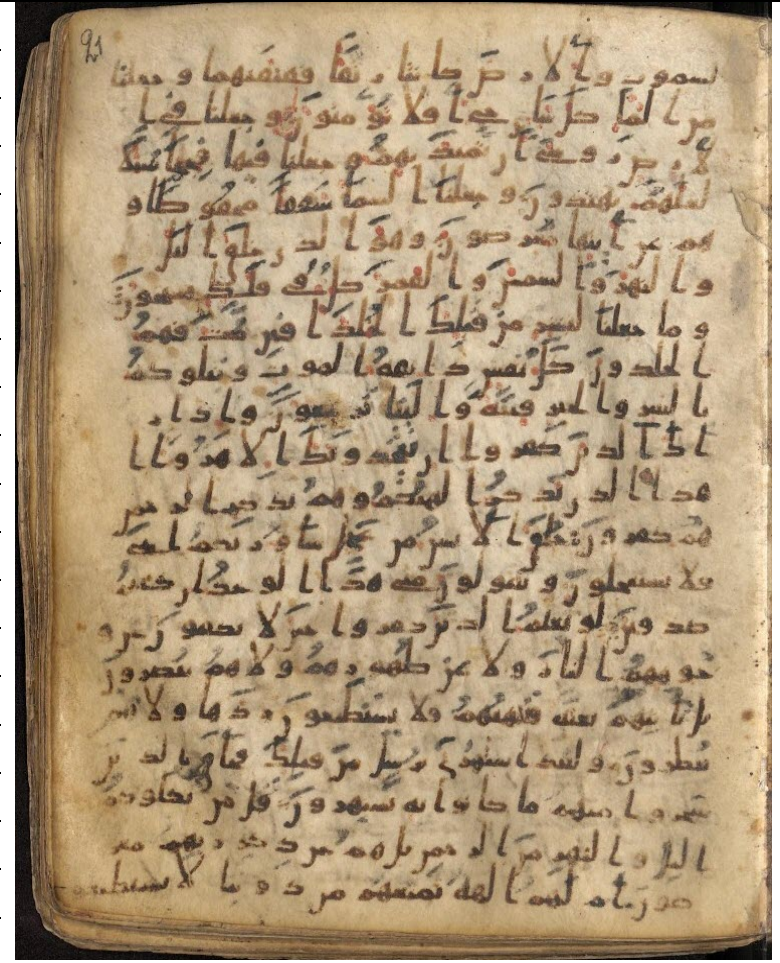 لسموت والارض كانتا رتقا ففتقنهما وجعلنا
من الما كل شي حي افلا يومنون وجعلنا في ا
لارض روسي ان تميد بهم وجعلنا فيها فجاجا سبلا
لعلهم يهتدون وجعلنا السما سقفا محفوظا و
هم عن ايتها معرضون وهو الذي خلق اليل
والنهر والشمس والقمر كل في فلك يسبحون
وما جعلنا لبشر من قبلك الخلد افاين مت فهم
الخلدون كل نفس ذايقه الموت ونبلوكم
بالشر والخير فتنه والينا ترجعون واذا ر
اك الذين كفروا ان يتخذونك الا هزوا ا
هذا الذي يذكر الهتكم وهم بذكر الرحمن
هم كفرون خلق الانسن من عجل ساوريكم ايتي
فلا تستعجلون ويقولون متي هذا الوعد ان كنتم
صدقين لو يعلم الذين كفروا حين لا يكفون عن و
جوههم النار ولا عن ظهورهم ولا هم ينصرون
بل تاتيهم بغته فتبهتهم فلا يستطيعون ردها ولا هم
ينظرون ولقد استهزي برسل من قبلك فحاق بالذين
سخروا منهم ما كانوا به يستهزون قل من يكلوكم
باليل والنهر من الرحمن بل هم عن ذكر ربهم معر
ضون ام لهم الهه تمنعهم من دوننا لا يستطيعو